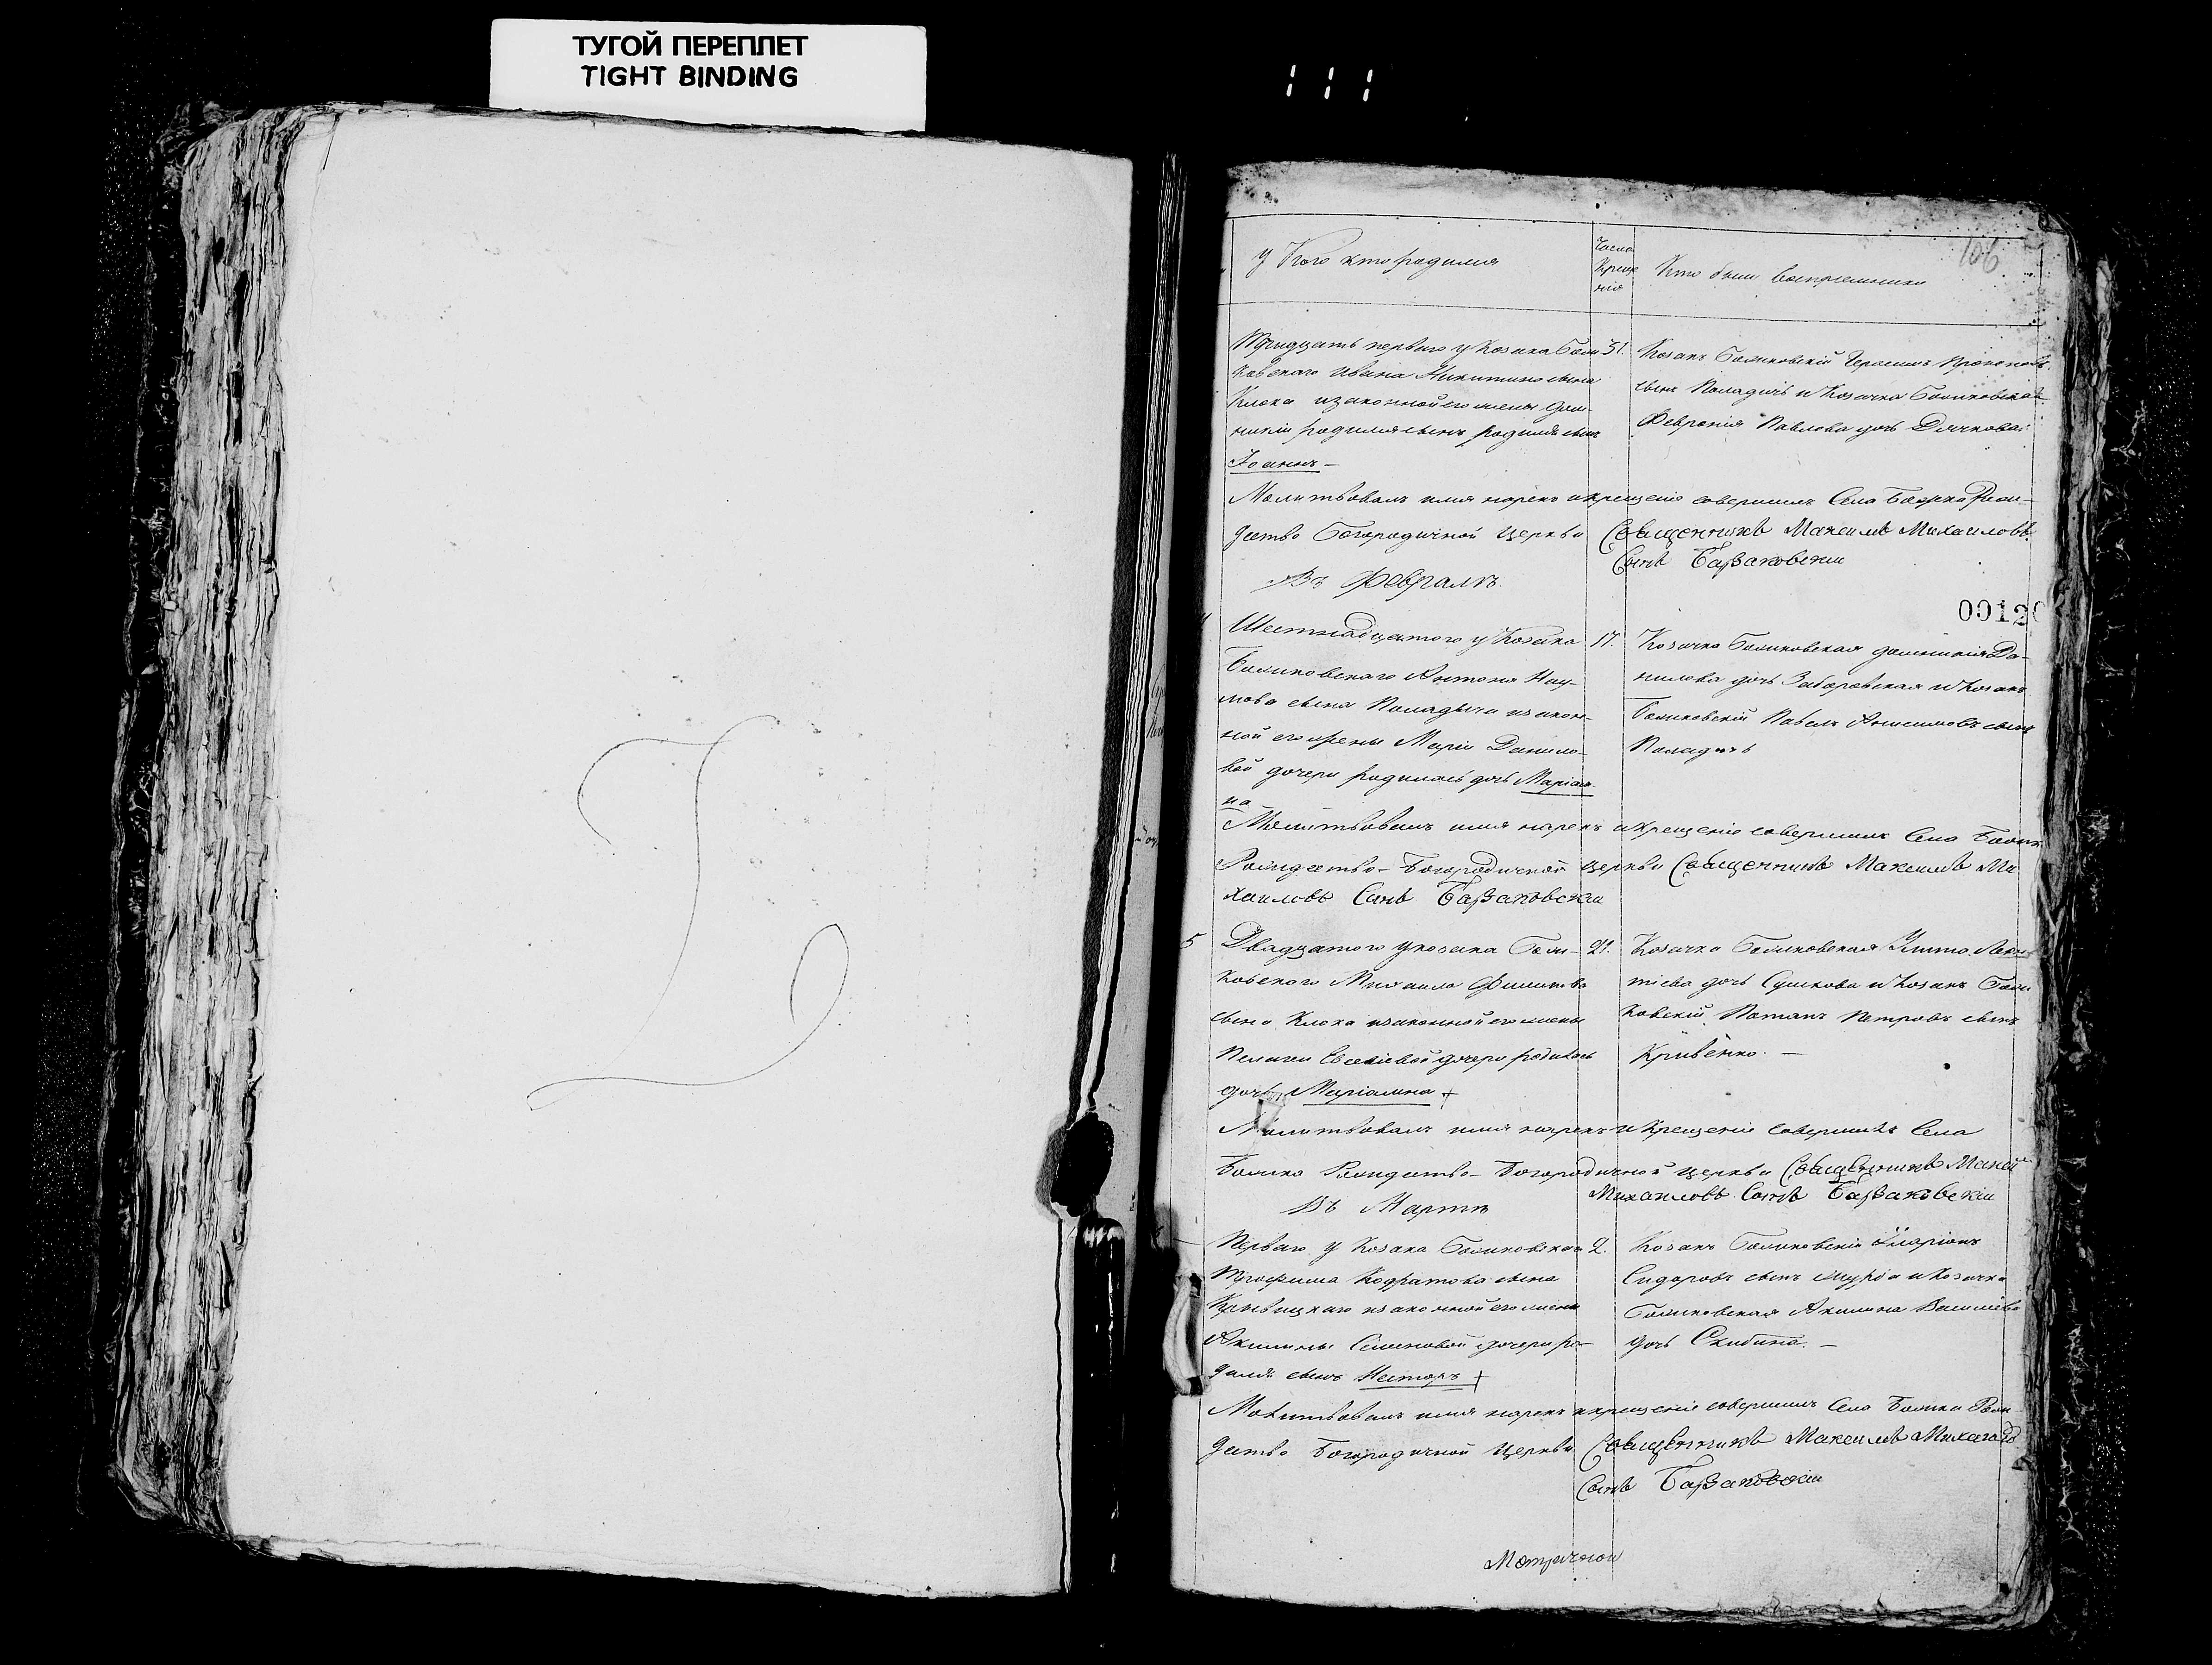 ТУГОЙ ПЕРЕПЛЕТ
TIGHT BINDING
106
У Кого кто родился
Числа Креще нія
Кто были Восприемники
Тридцать перваго у Козака Бали
31.
ковскаго Ивана Никитина сына
Клока изаконной его жены Дом-
никіи родился сынъ родился сынъ
Іоаннъ —
Козакъ Баликовскій Герасимъ Прокоповъ
сынъ Паладичъ и Козачка Баликовская
Феронія Павлова дочь Дячкова
Молитвовалъ имя нарекъ и крещеніе совершилъ Села Балика Рож-
дество Богородичной Церкви Священникъ Максимъ Михаиловъ
Сынъ Барзаковскіи
Въ Февралѣ.
00120
Шестнадцатого у Козака
17.
Баликовскаго Антона Нау-
мова сына Паладича изакон-
ной его жены Маріи Данило-
вой дочери родилась дочь Маріан
на
Козачка Баликовская Домникія Да-
нилова дочь Заборовская и Козакъ
Баликовскій Павелъ Анисимовъ сынъ
Паладичъ
Молитвовалъ имя нарекъ и крещеніе совершилъ Села Балик
Рождество-Богородичной Церкви Священникъ Максимъ Ми
хаиловъ Сынъ Барзаковскіи
5
Двадцатого у козака Бали-
21.
ковского Михаила Филипова
сына Клока изаконной его жены
Пелагеи Евсевіевой дочери родилась
дочь Маріамна +
Козачка Баликовская
дочь Сушкова и Козакъ Бали
ковскій Потапъ Петровъ сынъ
Кривенко. —
Молитвовалъ имя нарекъ и Крещеніе совершилъ Села
Балика Рождество-Богородичной Церкви Священникъ Максим
Михаиловъ Сынъ Барзаковскіи
Въ Мартѣ
Перваго у Козака Баликовскаго
2.
Трофима Кодратова сына
Кривицкаго изаконной его жены
Акилины Семеновой дочери ро-
дился сынъ Несторъ +
Козакъ Баликовскій Иларіонъ
Сидоровъ сынъ и Козачка
Баликовская Акилина Василіева
дочь Скибина. —
Молитвовалъ имя нарекъ и крещеніе совершилъ Села Балика Рож-
дество Богородичной Церкви Священникъ Максимъ Михаилов
Сынъ Барзаковскіи
Метричной